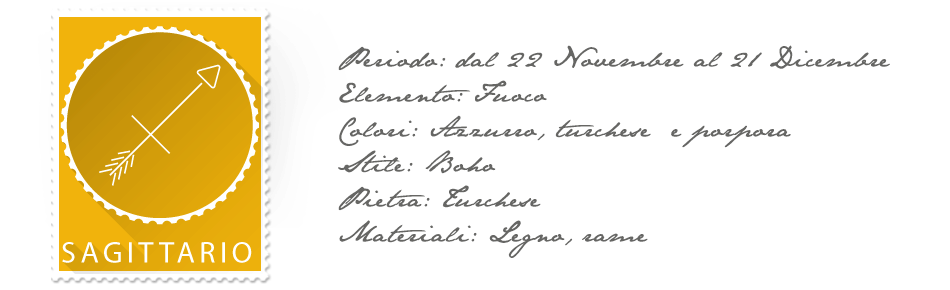 SAGITTARIO
Periodo: dal 22 Novembre al 21 Dicembre
Elemento: Fuoco
Colori: Azzurro, turchese e porpora
Stile: Boho
Pietra: Turchese
Materiali: Legno, rame